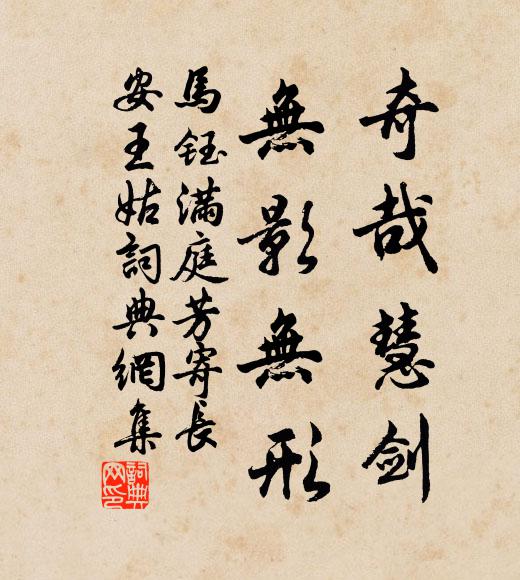 奇哉慧剑
無影無形
馬鈺滿庭芳寄長
安王姑詞典網集
詞典
网印